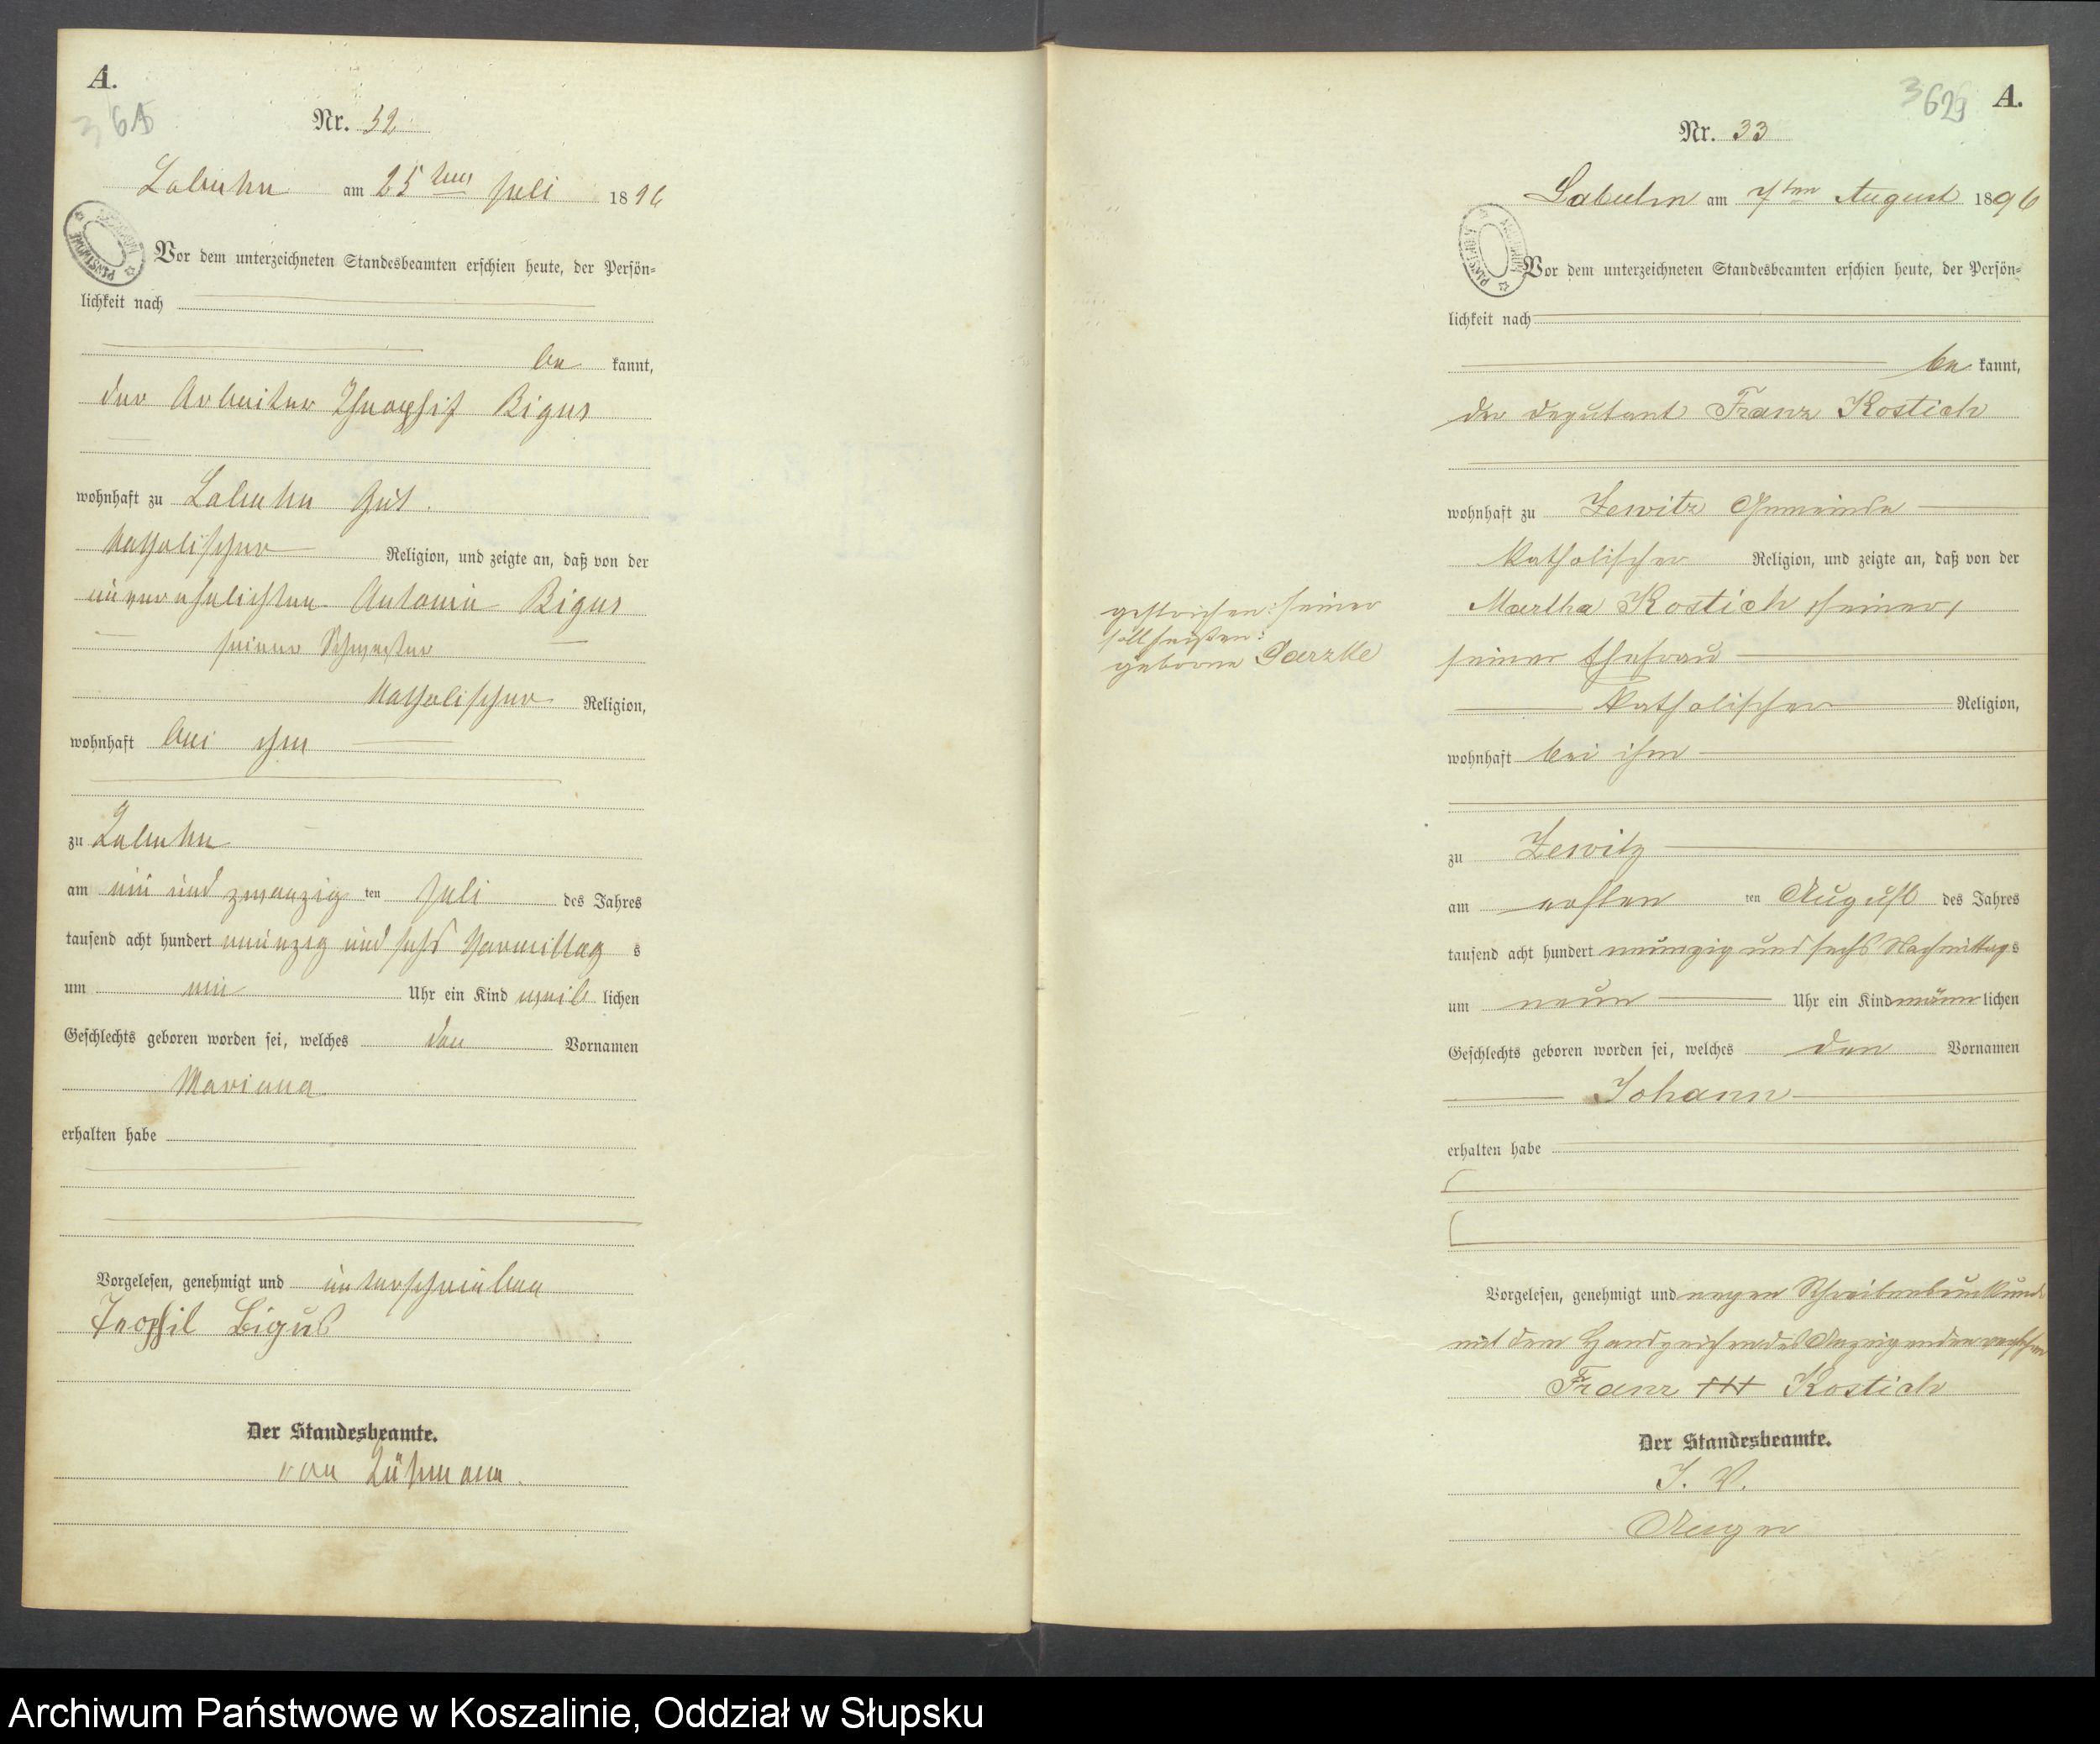 A.
365
Nr. 32
Labuhn am 25ten Juli 1896
Vor dem unterzeichneten Standesbeamten erschien heute, der Persön-
lichkeit nach
be kannt,
der Arbeiter Theophil Bigus
wohnhaft zu Labuhn Gut.
katholischer Religion, und zeigte an, daß von der
unverehelichten Antonie Bigus
seiner Schwester
katholischer Religion,
wohnhaft bei ihm
zu Labuhn
am ein und zwanzig ten Juli des Jahres
tausend acht hundert neunzig und sechs Vormittag s
um ein Uhr ein Kind weib lichen
Geschlechts geboren worden sei, welches den Vornamen
Mariana
erhalten habe
Vorgelesen, genehmigt und unterschrieben
Teophil Bigus
Der Standesbeamte.
von
A.
Nr. 33
Labuhn am 7ten August 1896
Vor dem unterzeichneten Standesbeamten erschien heute, der Persön-
lichkeit nach
be kannt,
der Deputant Franz Kostich
wohnhaft zu Zewitz Gemeinde
katholischer Religion, und zeigte an, daß von der
Martha Kostich seiner
seiner Ehefrau
katholischer Religion,
wohnhaft bei ihm
gestrichen: seiner
soll heißen:
geborene
zu Zewitz
am ersten ten August des Jahres
tausend acht hundert neunzig und sechs Nachmittag s
um neun Uhr ein Kind männ lichen
Geschlechts geboren worden sei, welches den Vornamen
Johann
erhalten habe
Vorgelesen, genehmigt und wegen
mit dem Handzeichen des Anzeigenden versehen
Franz +++ Kostich
Der Standesbeamte.
I. V.
Archiwum Państwowe w Koszalinie, Oddział w Słupsku